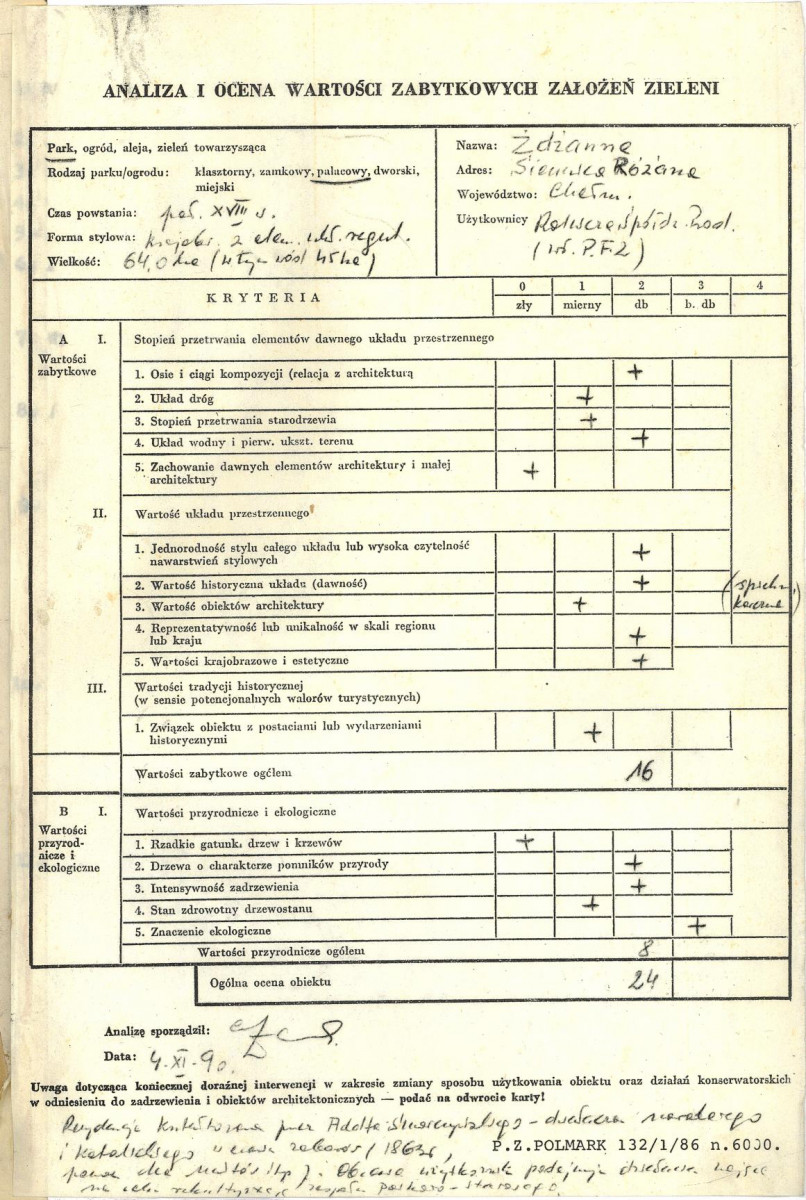 ANALIZA I OCENA WARTOŚCI ZABYTKOWYCH ZAŁOŻEŃ ZIELENI
Park, ogród, aleja, zieleń towarzysząca
Rodzaj parku/ogrodu: klasztorny, zamkowy, pałacowy, dworski,
miejski
Czas powstania: poł. XVIII w.
Forma stylowa: krajobr. z elem. ukł. regul.
Wielkość: 64,0 ha (w tym wód 45 ha)
Nazwa: Żdżanne
Adres: Siennica Różana
Województwo: Chełm.
Użytkownicy Prod.
(wł. P.F.Z)
KRYTERIA
0 1 2 3 4
zły mierny db b. db
A I. Stopień przetrwania elementów dawnego układu przestrzennego
Wartości
zabytkowe
1. Osie i ciągi kompozycji (relacja z architekturą +
2. Układ dróg +
3. Stopień przetrwania starodrzewia +
4. Układ wodny i pierw. ukszt. terenu +
5. Zachowanie dawnych elementów architektury i małej
architektury +
II. Wartość układu przestrzennego
1. Jednorodność stylu całego układu lub wysoka czytelność
nawarstwień stylowych +
2. Wartość historyczna układu (dawność) +
3. Wartość obiektów architektury + (spichl. karczma)
4. Reprezentatywność lub unikalność w skali regionu
lub kraju +
5. Wartości krajobrazowe i estetyczne +
III. Wartości tradycji historycznej
(w sensie potencjonalnych walorów turystycznych)
1. Związek obiektu z postaciami lub wydarzeniami
historycznymi +
Wartości zabytkowe ogółem 16
B I. Wartości przyrodnicze i ekologiczne
Wartości
przyrod-
nicze i
ekologiczne
1. Rzadkie gatunki drzew i krzewów +
2. Drzewa o charakterze pomników przyrody +
3. Intensywność zadrzewienia +
4. Stan zdrowotny drzewostanu +
5. Znaczenie ekologiczne +
Wartości przyrodnicze ogółem 8
Ogólna ocena obiektu 24
Analizę sporządził:
Data: 4.XI.90.
Uwaga dotycząca koniecznej doraźnej interwencji w zakresie zmiany sposobu użytkowania obiektu oraz działań konserwatorskich
w odniesieniu do zadrzewienia i obiektów architektonicznych — podać na odwrocie karty!
Rezydencja przez Adolfa - działacza narodowego
i katolickiego w czasie zaborów (1863r,
P.Z.POLMARK 132/1/86 n.6000.
). Obecny użytkownik podejmuje działania mające
na celu zespołu